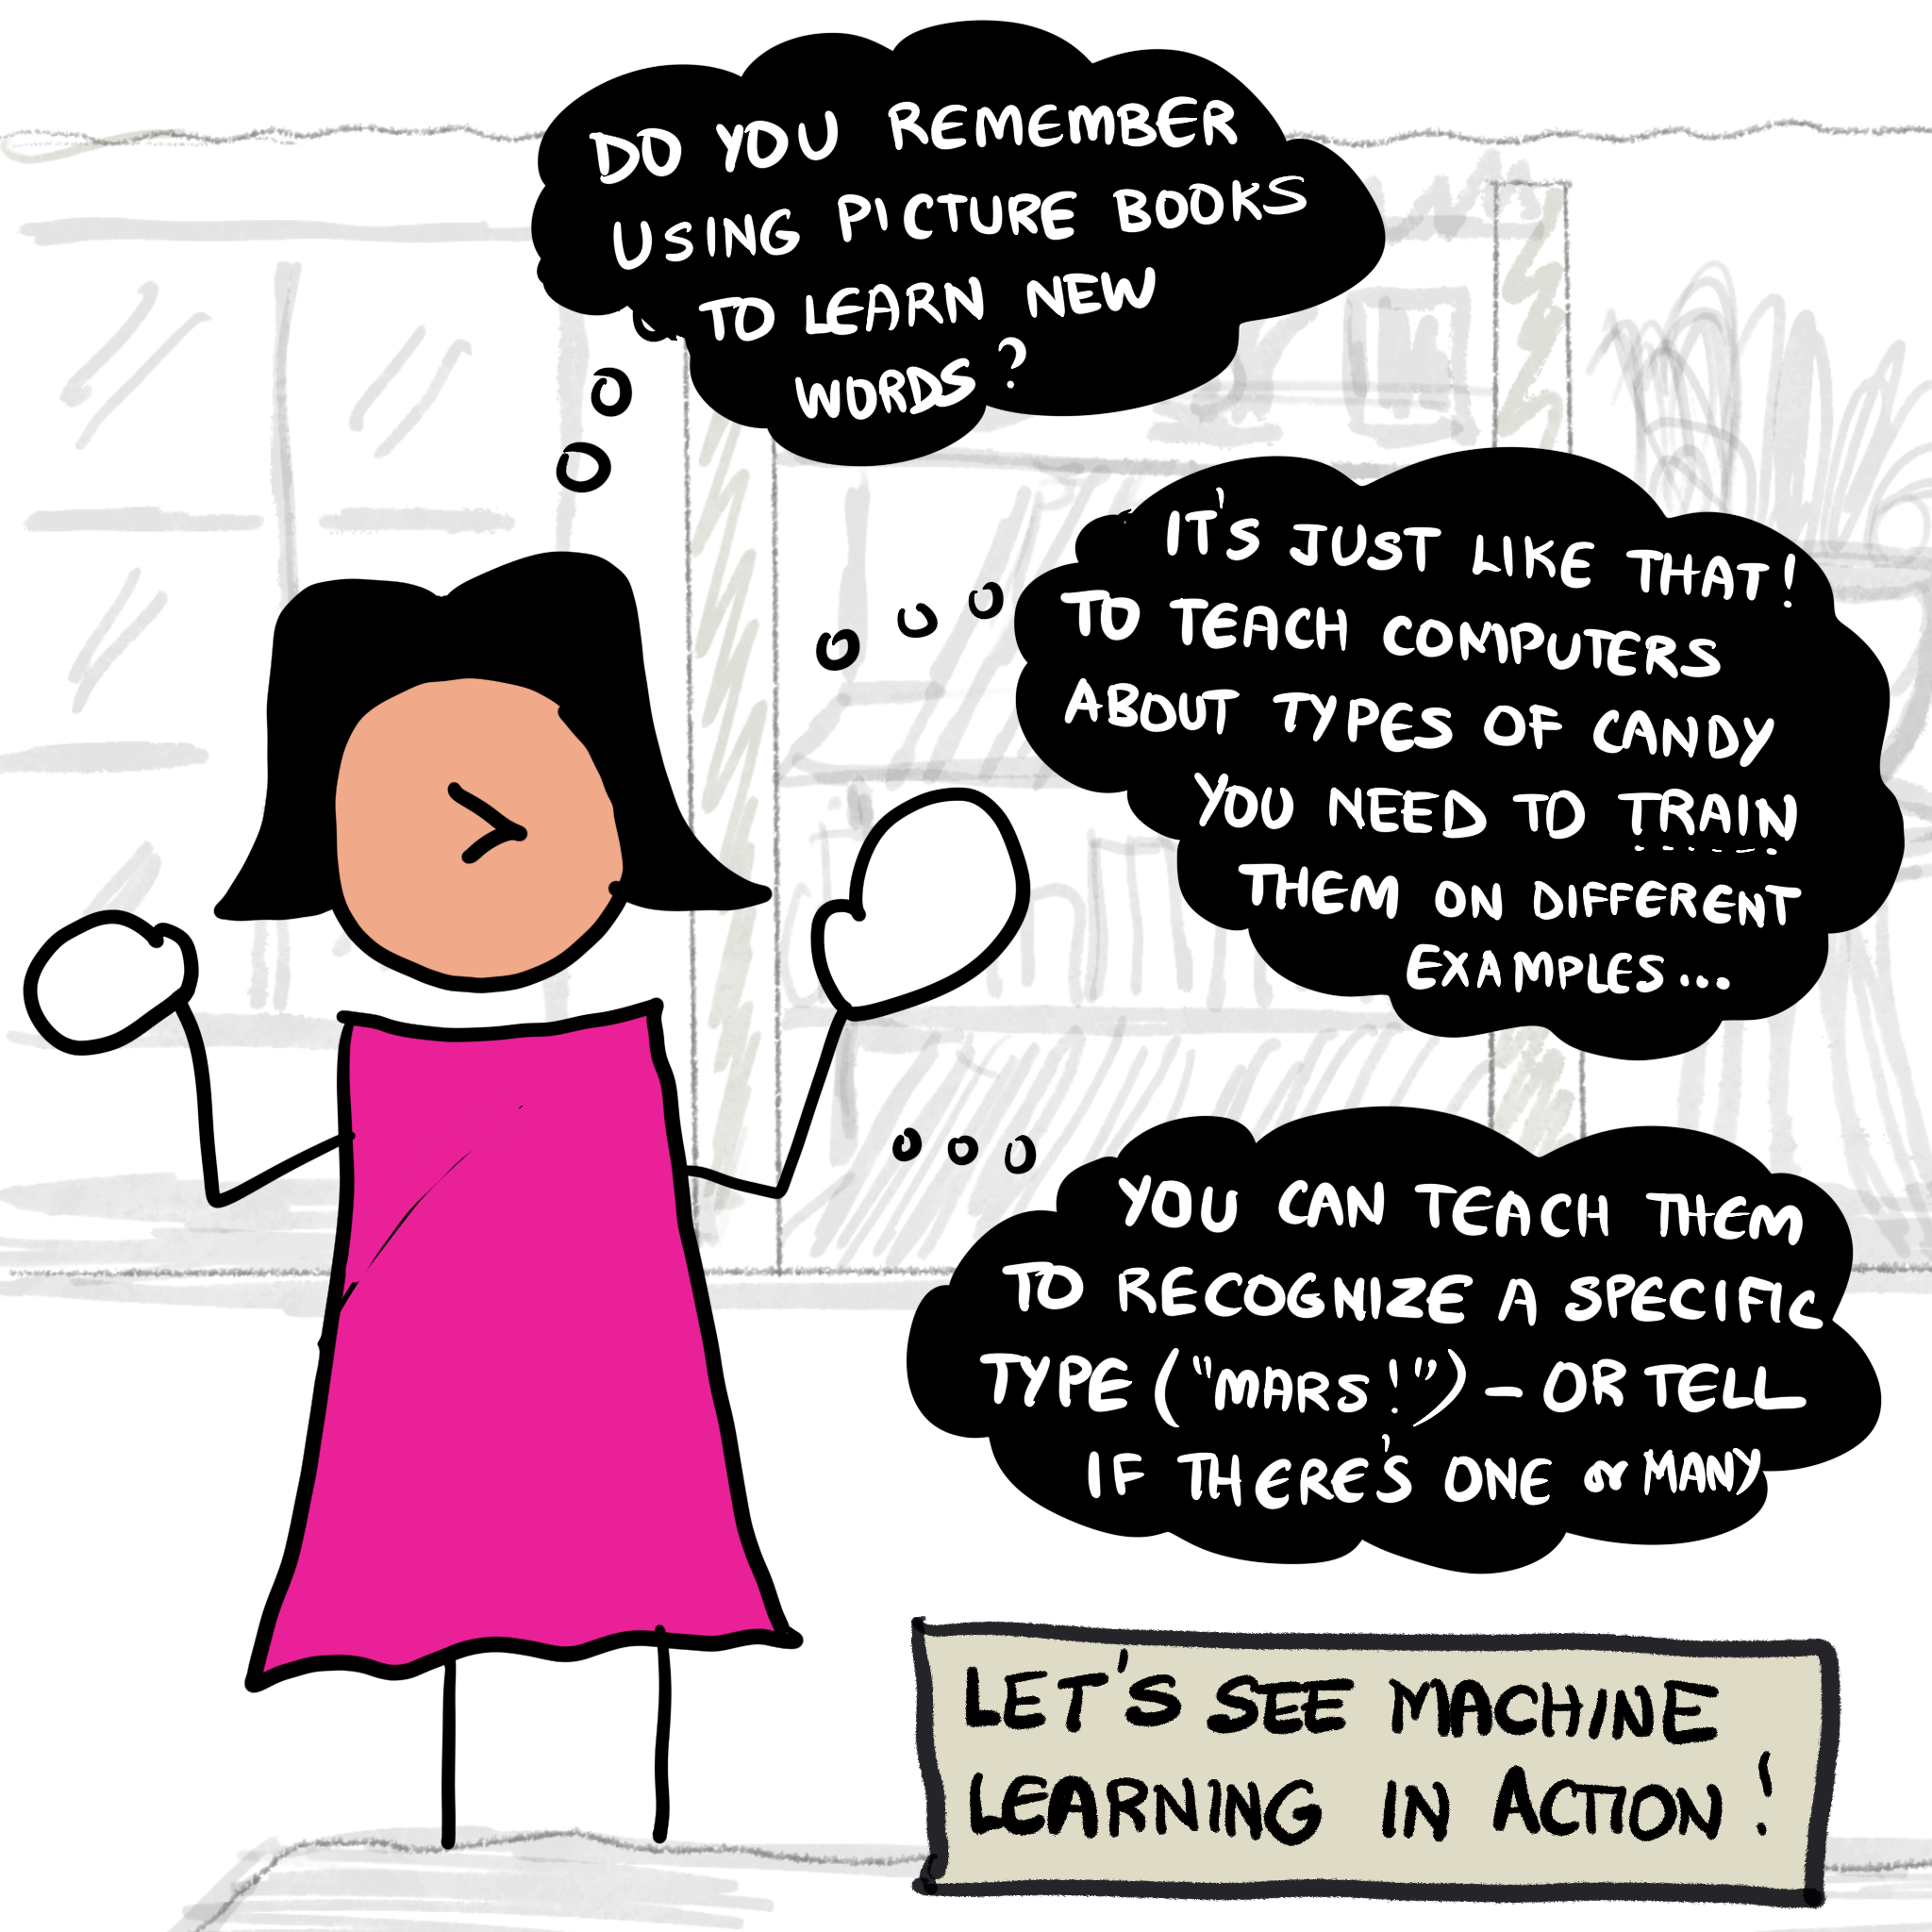 DO YOU REMEMBER
USING PICTURE BOOKS
TO LEARN NEW
WORDS?
IT'S JUST LIKE THAT!
TO TEACH COMPUTERS
ABOUT TYPES OF CANDY
YOU NEED TO TRAIN
THEM ON DIFFERENT
EXAMPLES...
YOU CAN TEACH THEM
TO RECOGNIZE A SPECIFIC
TYPE ("MARS!") - OR TELL
IF THERE'S ONE or MANY
LET'S SEE MACHINE
LEARNING IN ACTION!